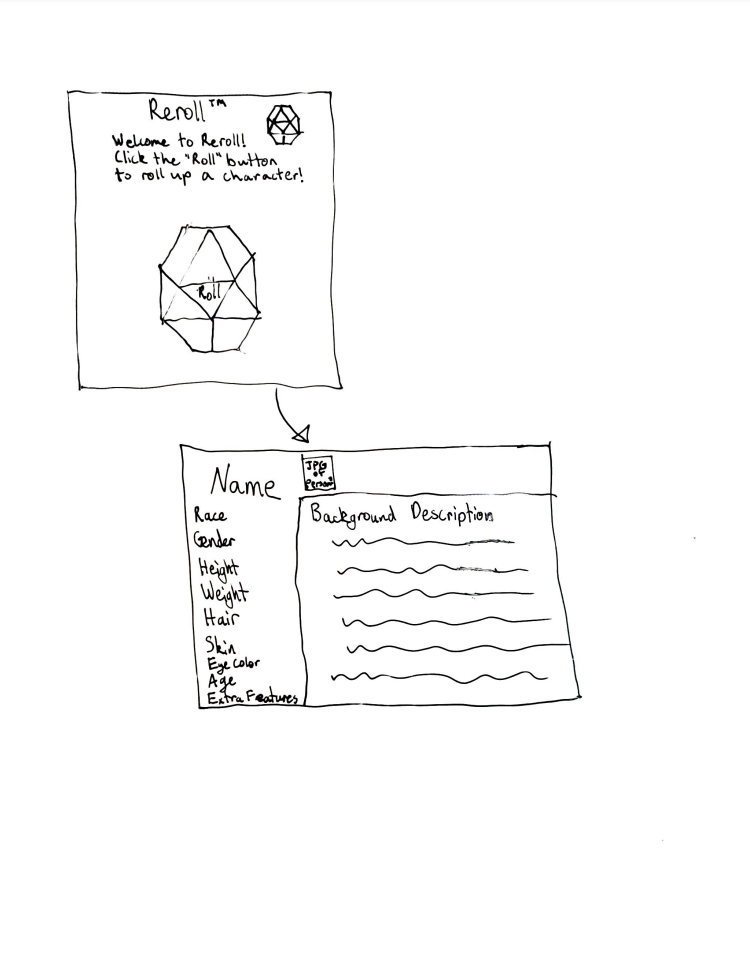 Reroll™
Welcome to Reroll!
Click the "Roll" button
to roll up a character!
Roll
Name
JPG
of
Person
Race
Gender
Height
Weight
Hair
Skin
Eye color
Age
Extra Features
Background Description